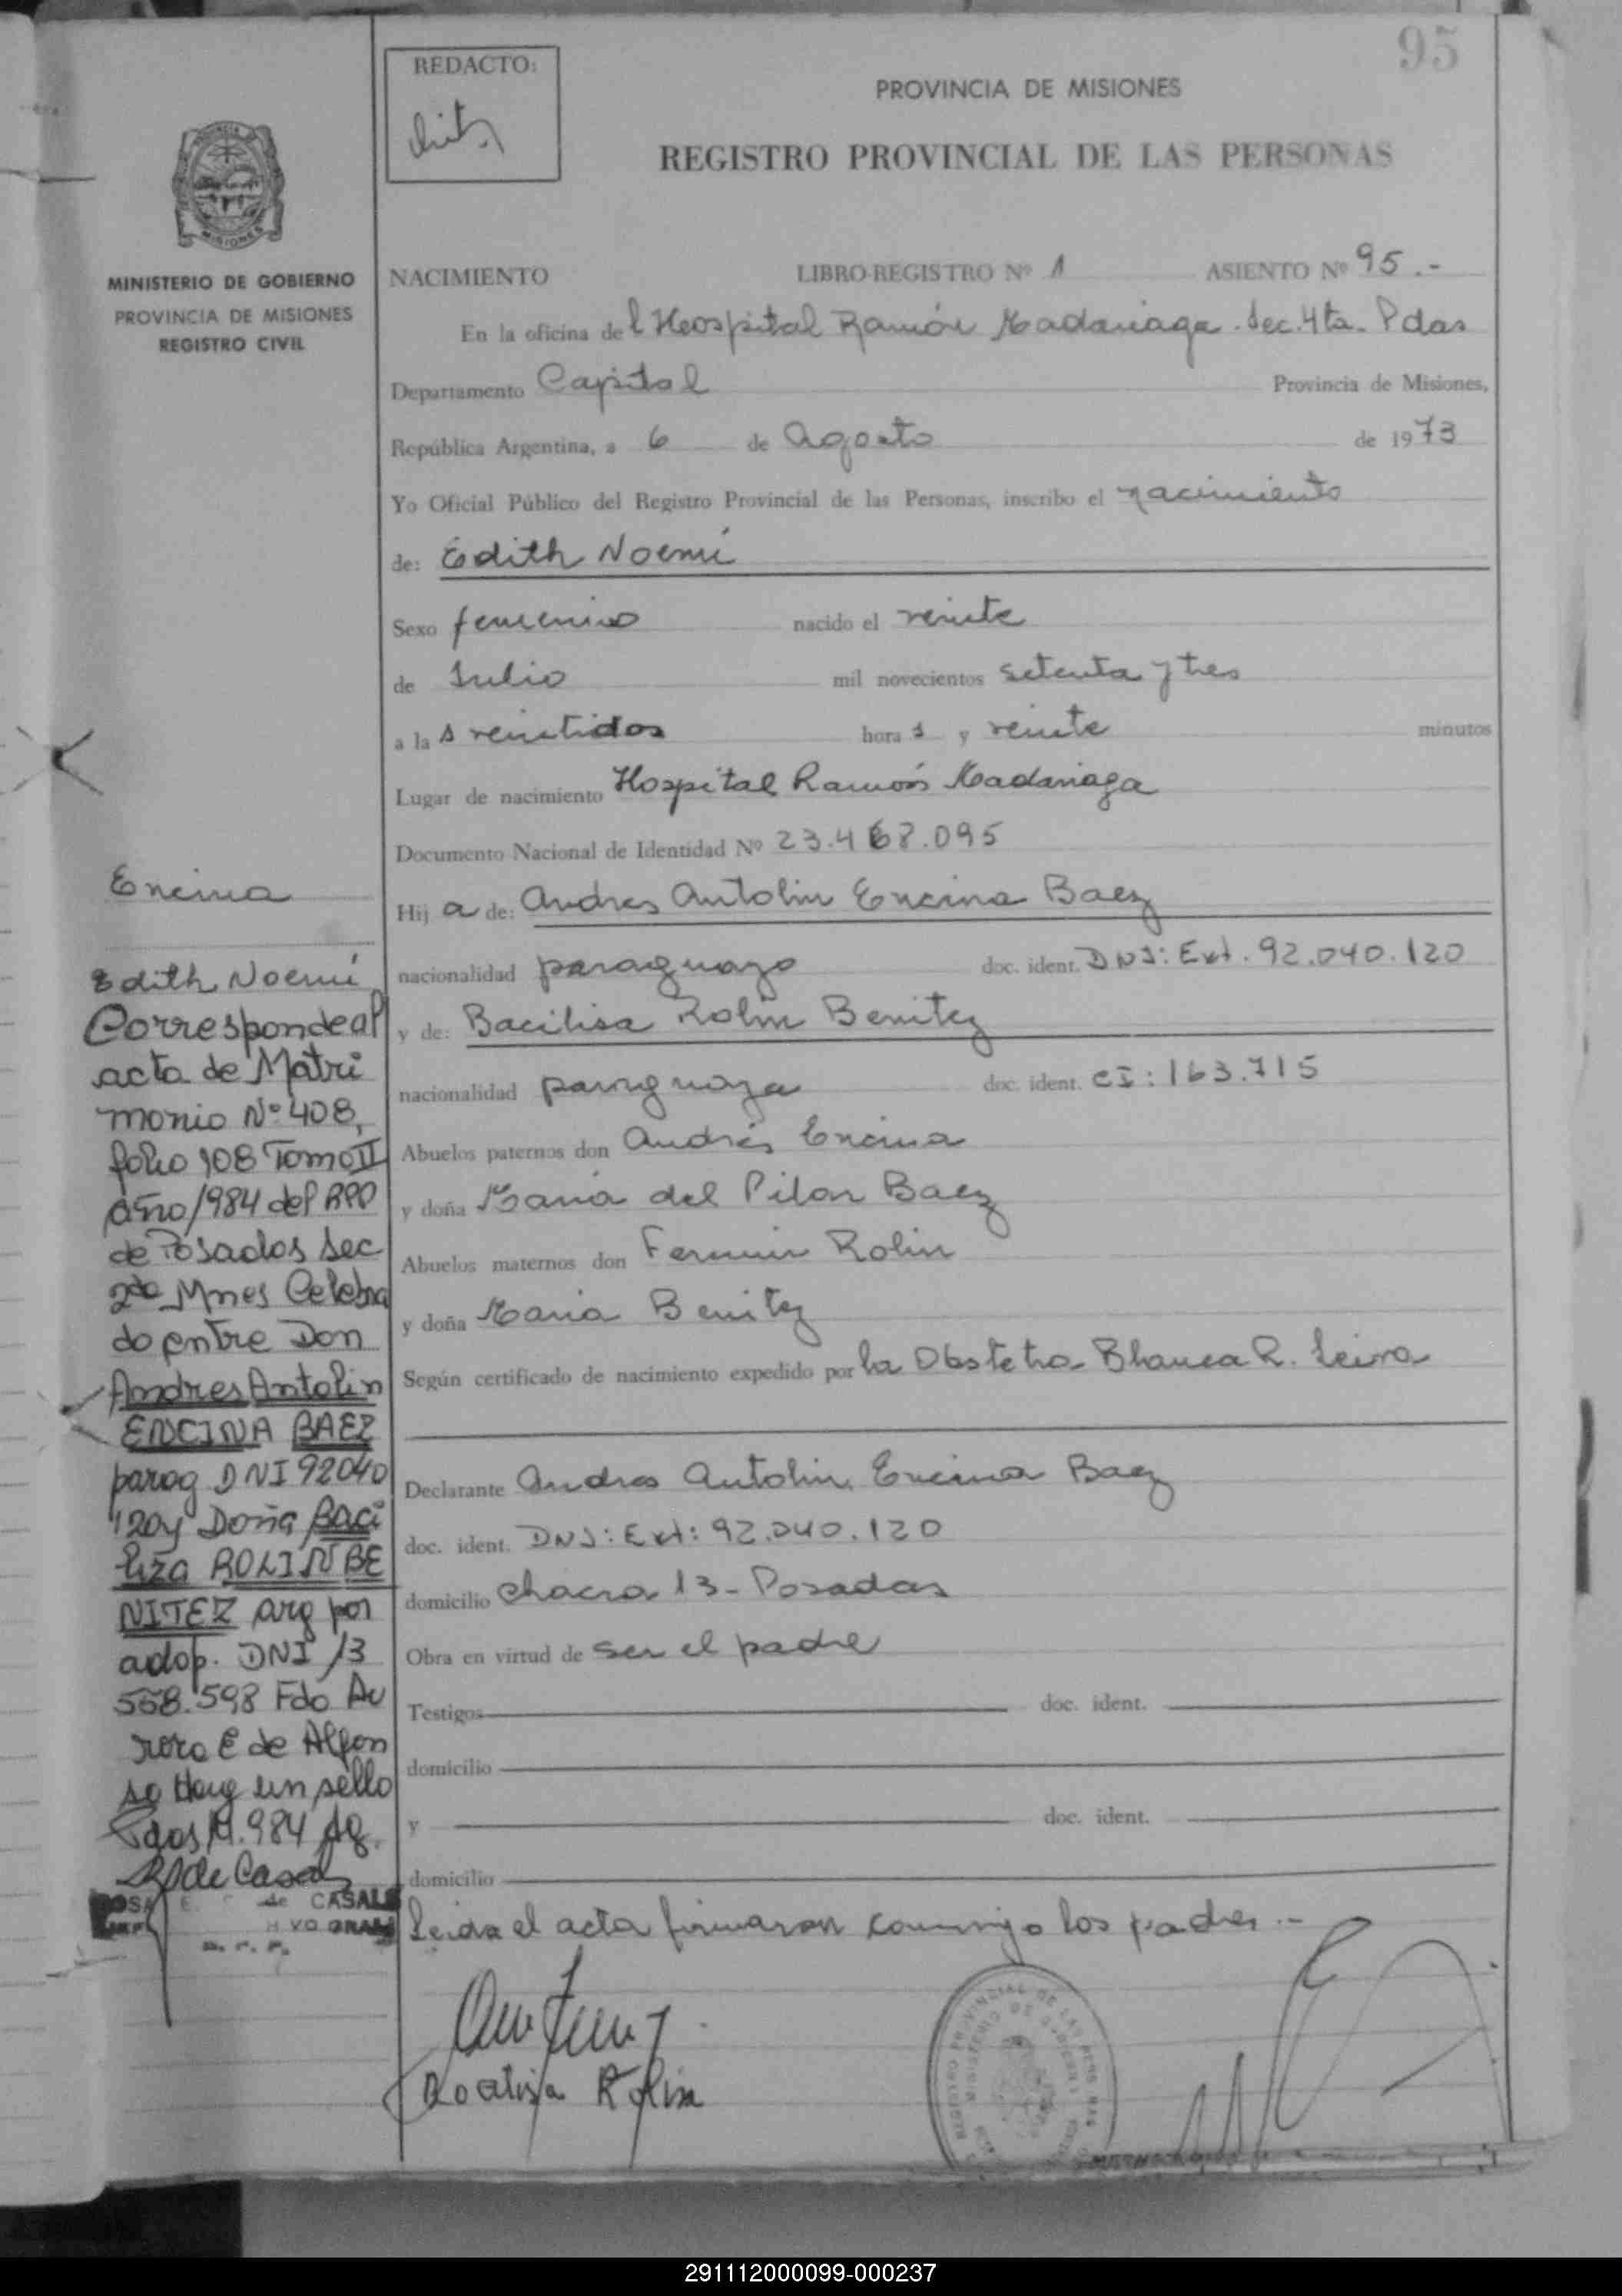 95
REDACTO:
PROVINCIA DE MISIONES
REGISTRO PROVINCIAL DE LAS PERSONAS
MISIONES
MINISTERIO DE GOBIERNO
PROVINCIA DE MISIONES
REGISTRO CIVIL
NACIMIENTO LIBRO-REGISTRO Nº 1 ASIENTO Nº 95.-
En la oficina del Hospital Ramón Madariaga. Sec. 4ta. Pdas
Departamento Capital Provincia de Misiones,
República Argentina, a 6 de Agosto de 1973
Yo Oficial Público del Registro Provincial de las Personas, inscribo el nacimiento
de: Edith Noemí
Sexo femenino nacido el veinte
de Julio mil novecientos setenta y tres
a las veintidos horas y veinte minutos
Lugar de nacimiento Hospital Ramón Madariaga
Documento Nacional de Identidad Nº 23.468.095
Hija de: Andres Antolin Encina Baez
nacionalidad paraguayo doc. ident. DNI: Ext. 92.040.120
y de: Bacilisa Rolin Benitez
nacionalidad paraguaya doc. ident. CI: 163.715
Abuelos paternos don Andrés Encina
y doña Maria del Pilar Baez
Abuelos maternos don Fermin Rolin
y doña Maria Benitez
Según certificado de nacimiento expedido por la Obstetra Blanca R. Leiva
Declarante Andres Antolin Encina Baez
doc. ident. DNI: Ext: 92.040.120
domicilio Chacra 13 - Posadas
Obra en virtud de ser el padre
Testigos doc. ident.
domicilio
y doc. ident.
domicilio
Leida el acta firmaron conmigo los padres.-
Bacilisa Rolin
Encina
Edith Noemí
Corresponde al
acta de Matri
monio Nº 408,
folio 108 Tomo II
año 1984 del RPP
de Posadas Sec
2da Mnes Celebra
do entre Don
Andres Antolin
ENCINA BAEZ
parag DNI 92040
120 y Doña Baci
liza ROLIN BE
NITEZ arg por
adop. DNI 13
558.598 Fdo Au
rora E de Alfon
so Hay un sello
Pdas
R de Casals
de CASALS
291112000099-000237